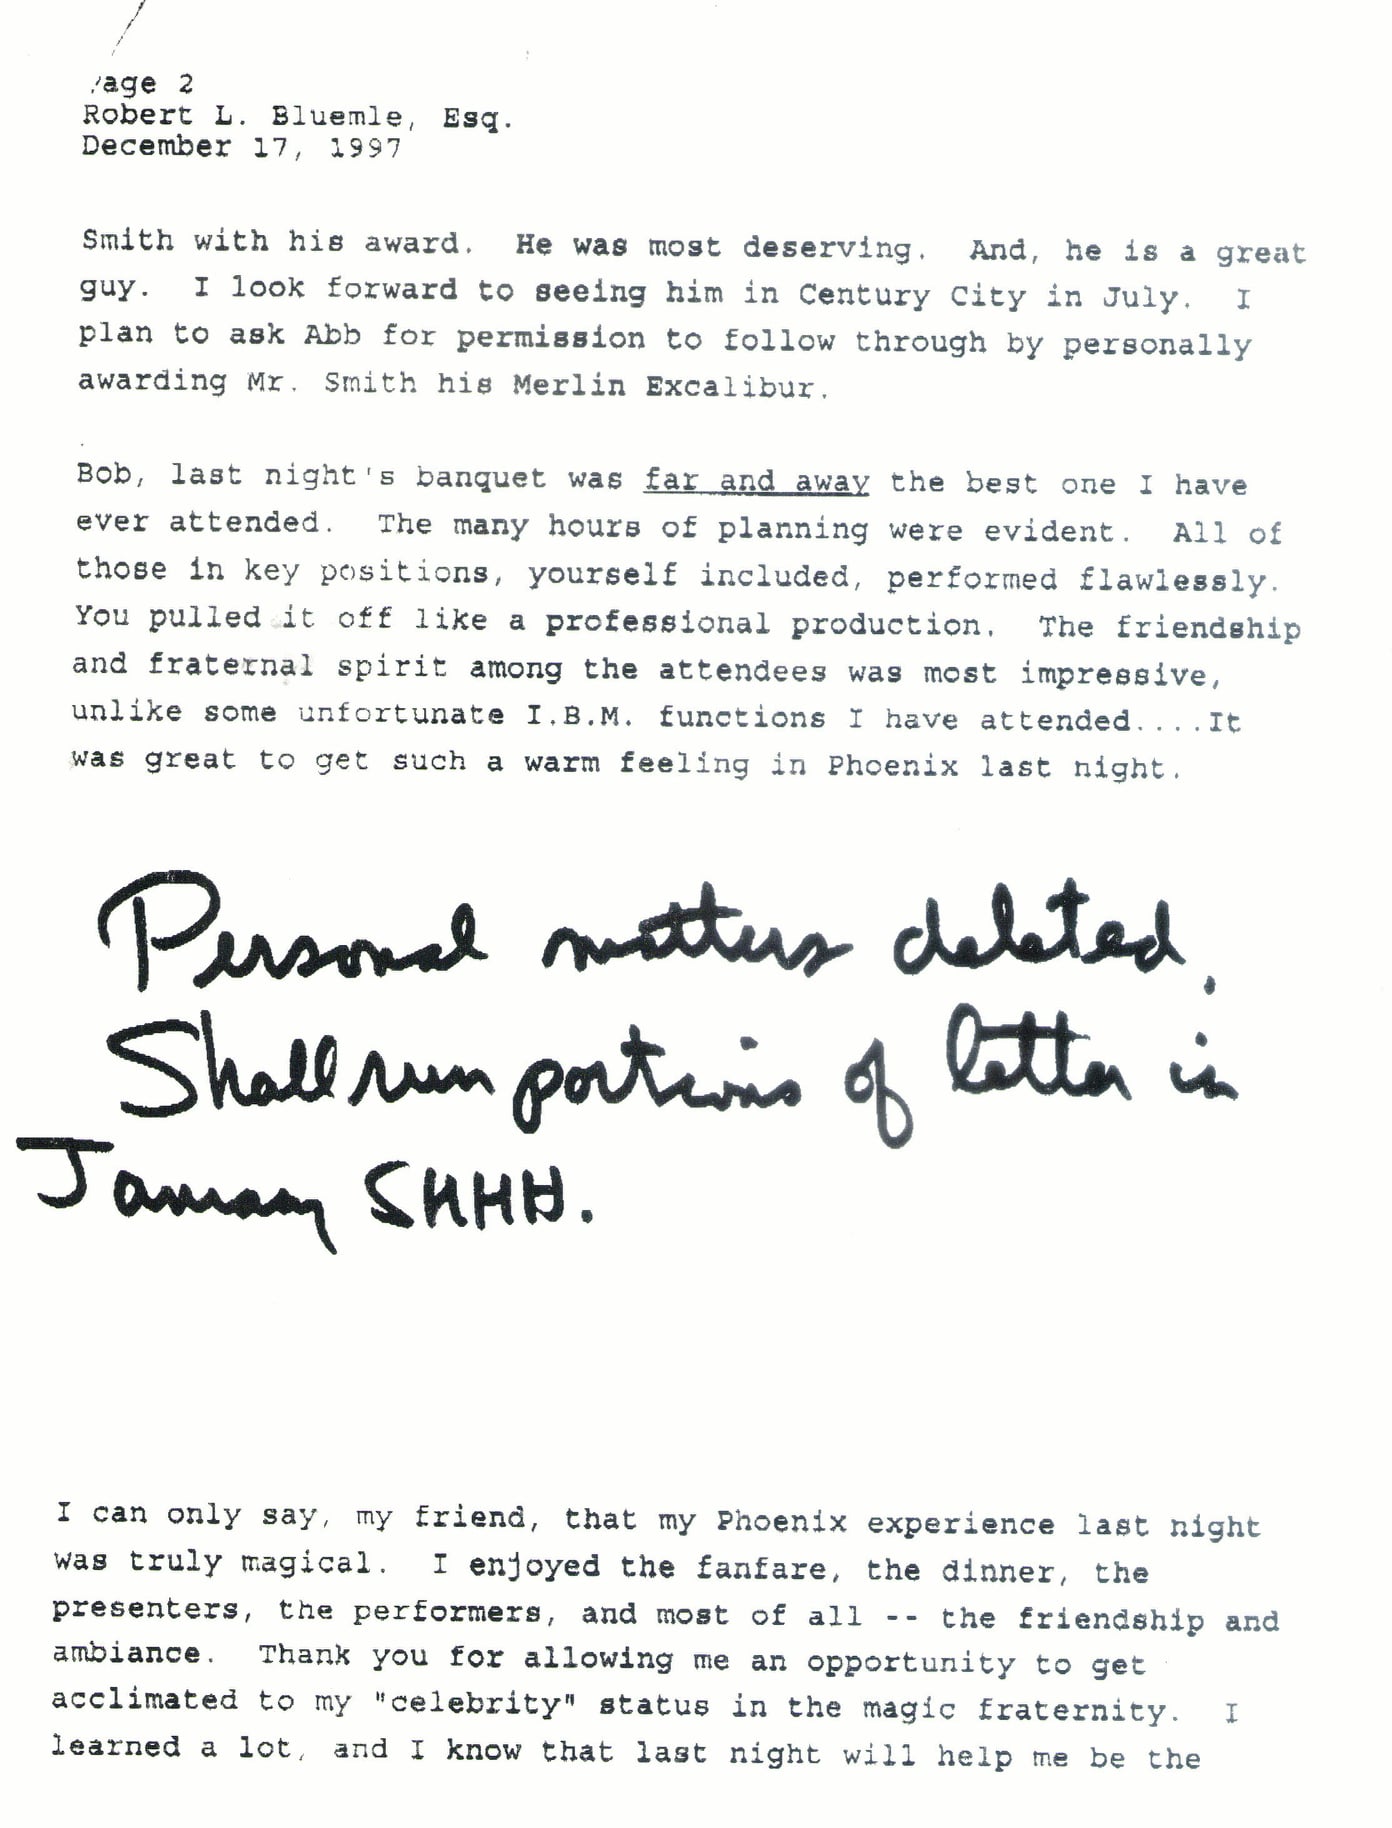 Page 2
Robert L. Bluemle, Esq.
December 17, 1997
Smith with his award.  He was most deserving.  And, he is a great
guy.  I look forward to seeing him in Century City in July.  I
plan to ask Abb for permission to follow through by personally
awarding Mr. Smith his Merlin Excalibur.
Bob, last night's banquet was far and away the best one I have
ever attended.  The many hours of planning were evident.  All of
those in key positions, yourself included, performed flawlessly.
You pulled it off like a professional production.  The friendship
and fraternal spirit among the attendees was most impressive,
unlike some unfortunate I.B.M. functions I have attended....It
was great to get such a warm feeling in Phoenix last night.
Personal matters deleted.
Shall run portions of letter in
January SHHH.
I can only say, my friend, that my Phoenix experience last night
was truly magical.  I enjoyed the fanfare, the dinner, the
presenters, the performers, and most of all -- the friendship and
ambiance.  Thank you for allowing me an opportunity to get
acclimated to my "celebrity" status in the magic fraternity.  I
learned a lot, and I know that last night will help me be the